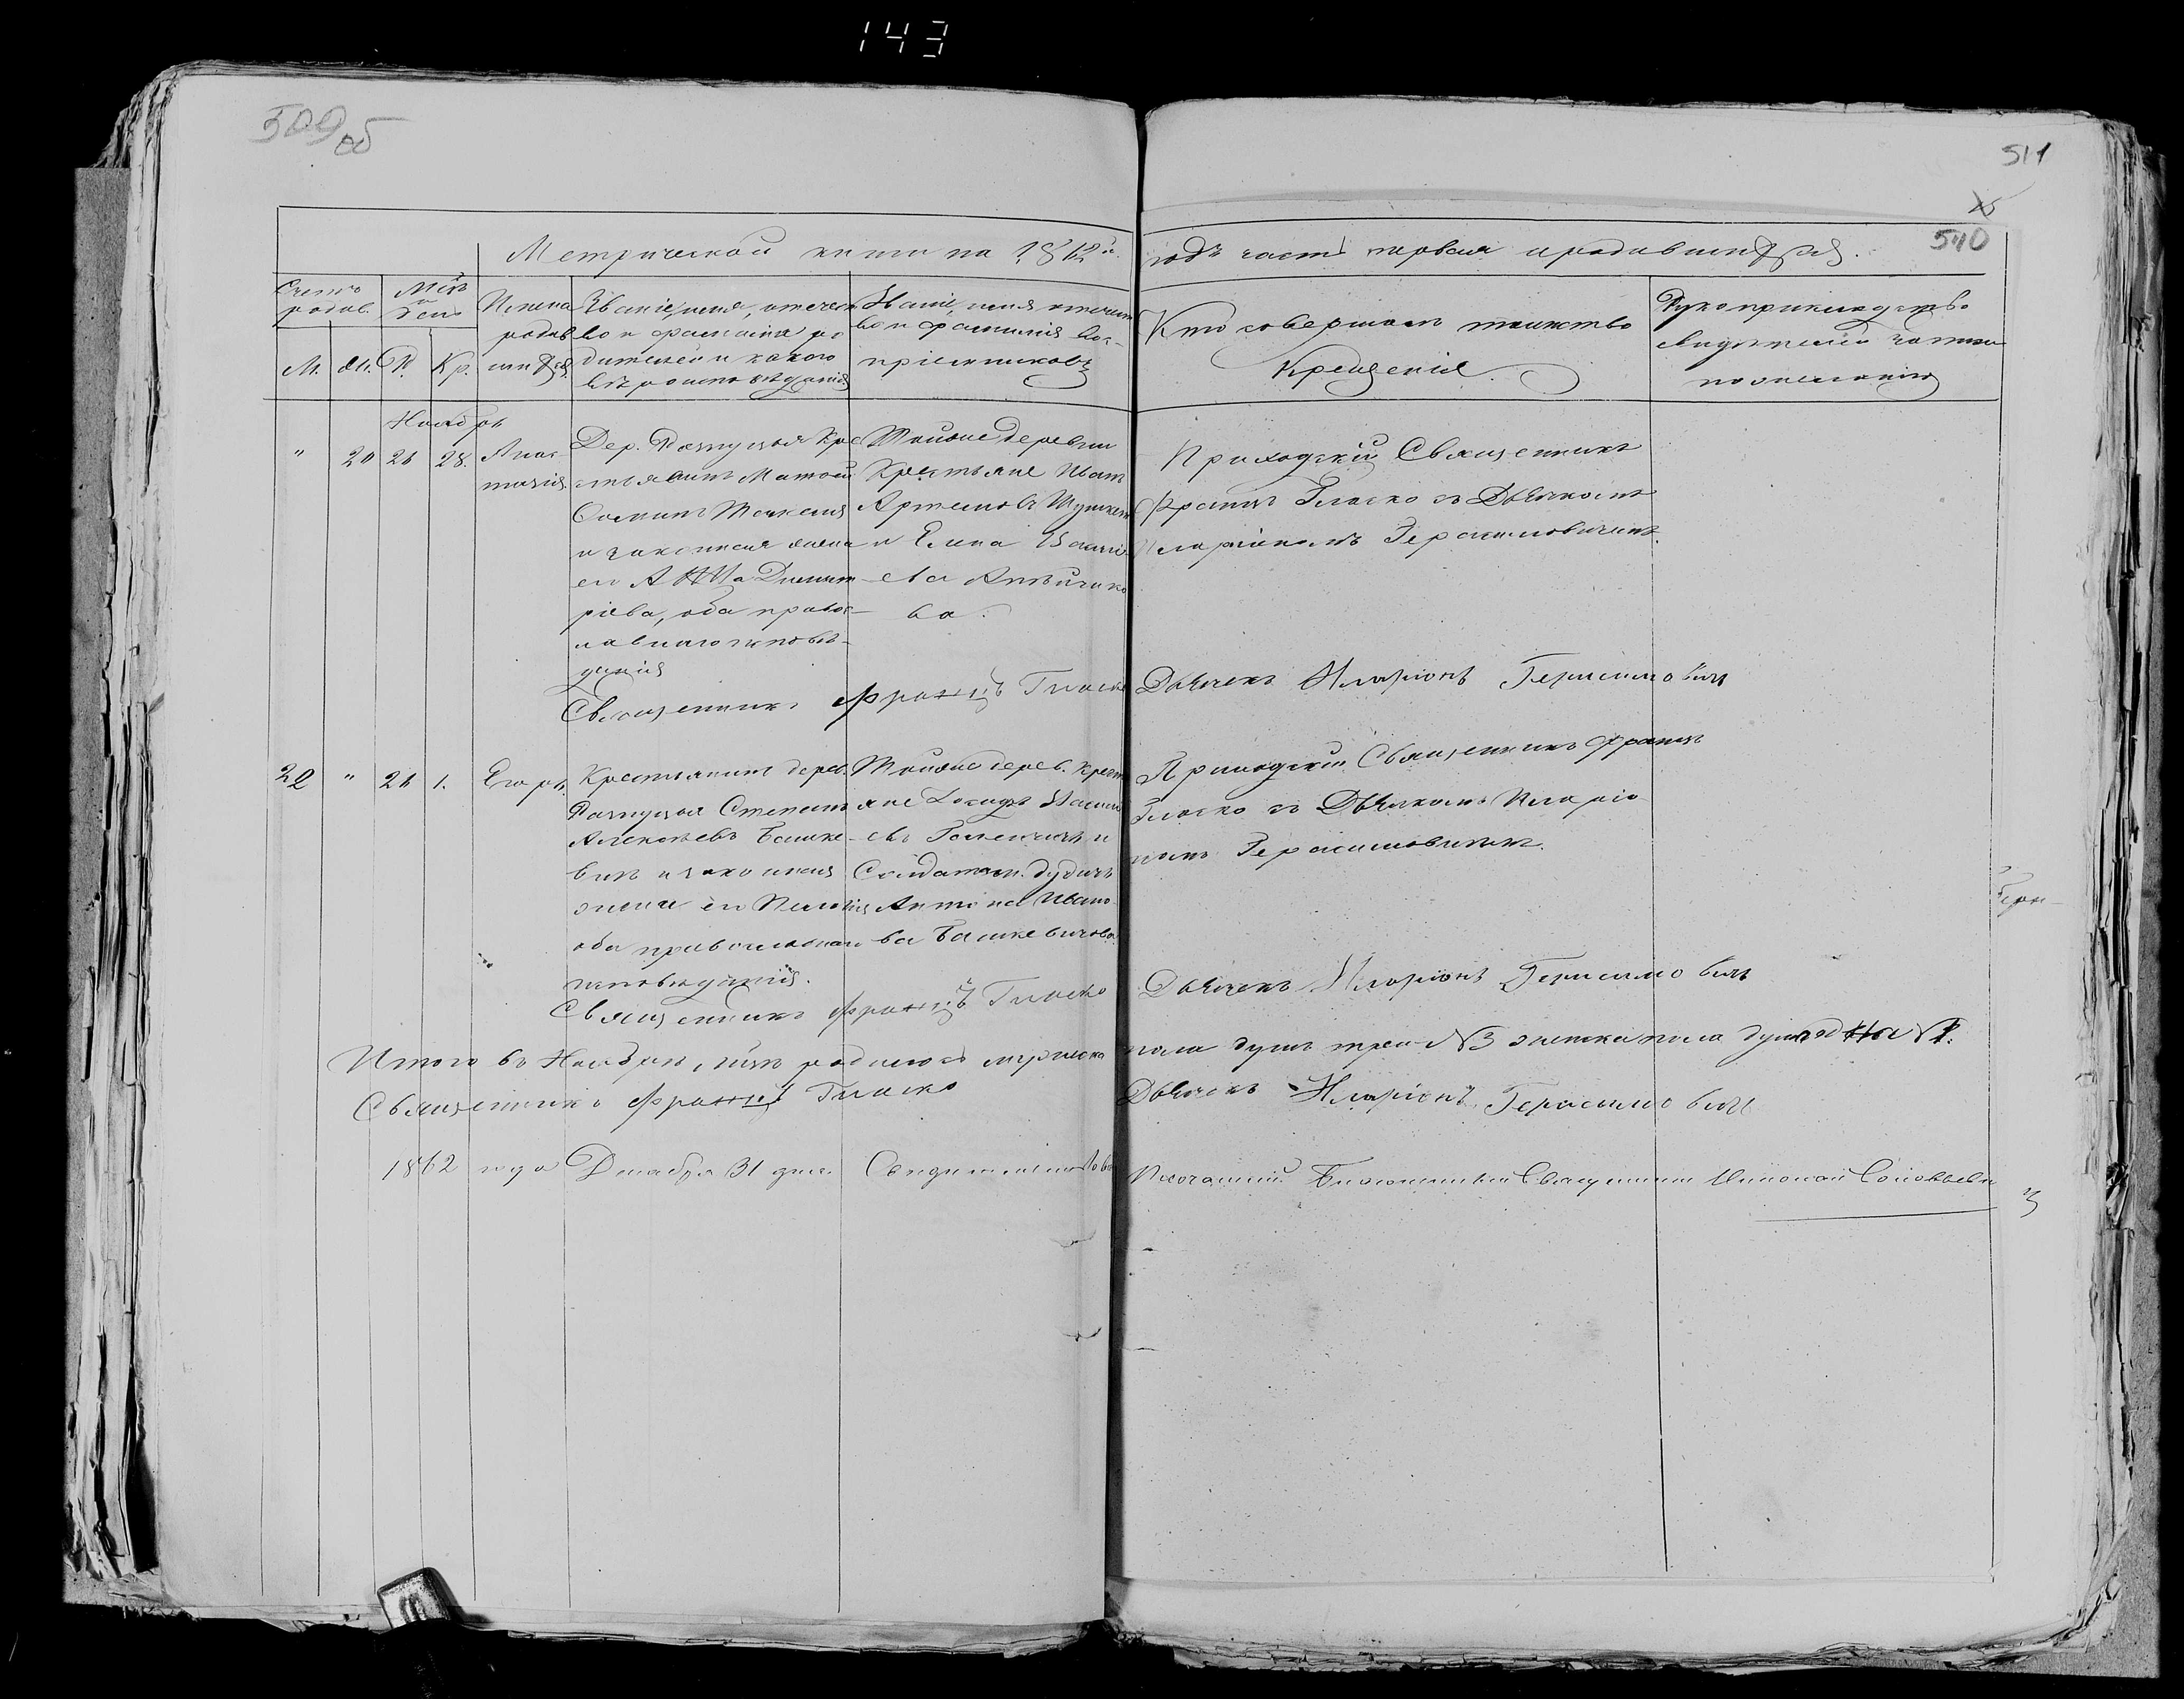 143
509 об
511
540
Метрической книги на 1862й
годъ часть первая о родившихся.
Счетъ родив.
М. Ж.
Мѣс. и день
Р. Кр.
Имена
родив
шихся.
Званіе, имя, отечест
во и фамилія ро
дителей и какого
вѣроисповѣданія
Званіе, имя отечест
во и фамилія вос-
пріемниковъ
Кто совершалъ таинство
Крещенія.
Рукоприкладство
свидѣтелей
по желанію
Ноябрь
" 20 26 28.
Анас-
тасія.
Дер. Крес
тьянинъ Матѳей
Осипъ
и законная жена
его Анна Димит
ріева, оба правос-
лавнаго исповѣ-
данія
Тойже деревни
Крестьяне Иванъ
Артемовъ
и Елена Василі-
ева
ва.
Приходскій Священникъ
Францъ Гласко съ Дьячкомъ
Иларіономъ Герасимовичемъ.
Священникъ Францъ Гласко
Дьячекъ Иларіонъ Герасимовичъ
20 " 26 1.
Егоръ.
Крестьянинъ дерев.
Степанъ
Алексѣевъ Башке-
вичъ и законная
жена его Пелагія
оба православнаго
исповѣданія.
Тойже дерев. Крест
яне Василі
евъ и
Солдатка
Антона Ивано
ва Башкевичова.
Приходскій Священникъ Францъ
Гласко съ Дьячкомъ Иларіо-
номъ Герасимовичемъ.
Священникъ Францъ Гласко
Дьячекъ Иларіонъ Герасимовичъ
Итого въ Ноябрѣ м-цѣ родилось мужеска
пола душъ три N3 женска пола душъ одна N1.
Священникъ Францъ Гласко
Дьячекъ Иларіонъ Герасимовичъ
1862 года Декабря 31 дня. Свидѣтельствовалъ
Благочинный Священникъ Николай Соловьевъ